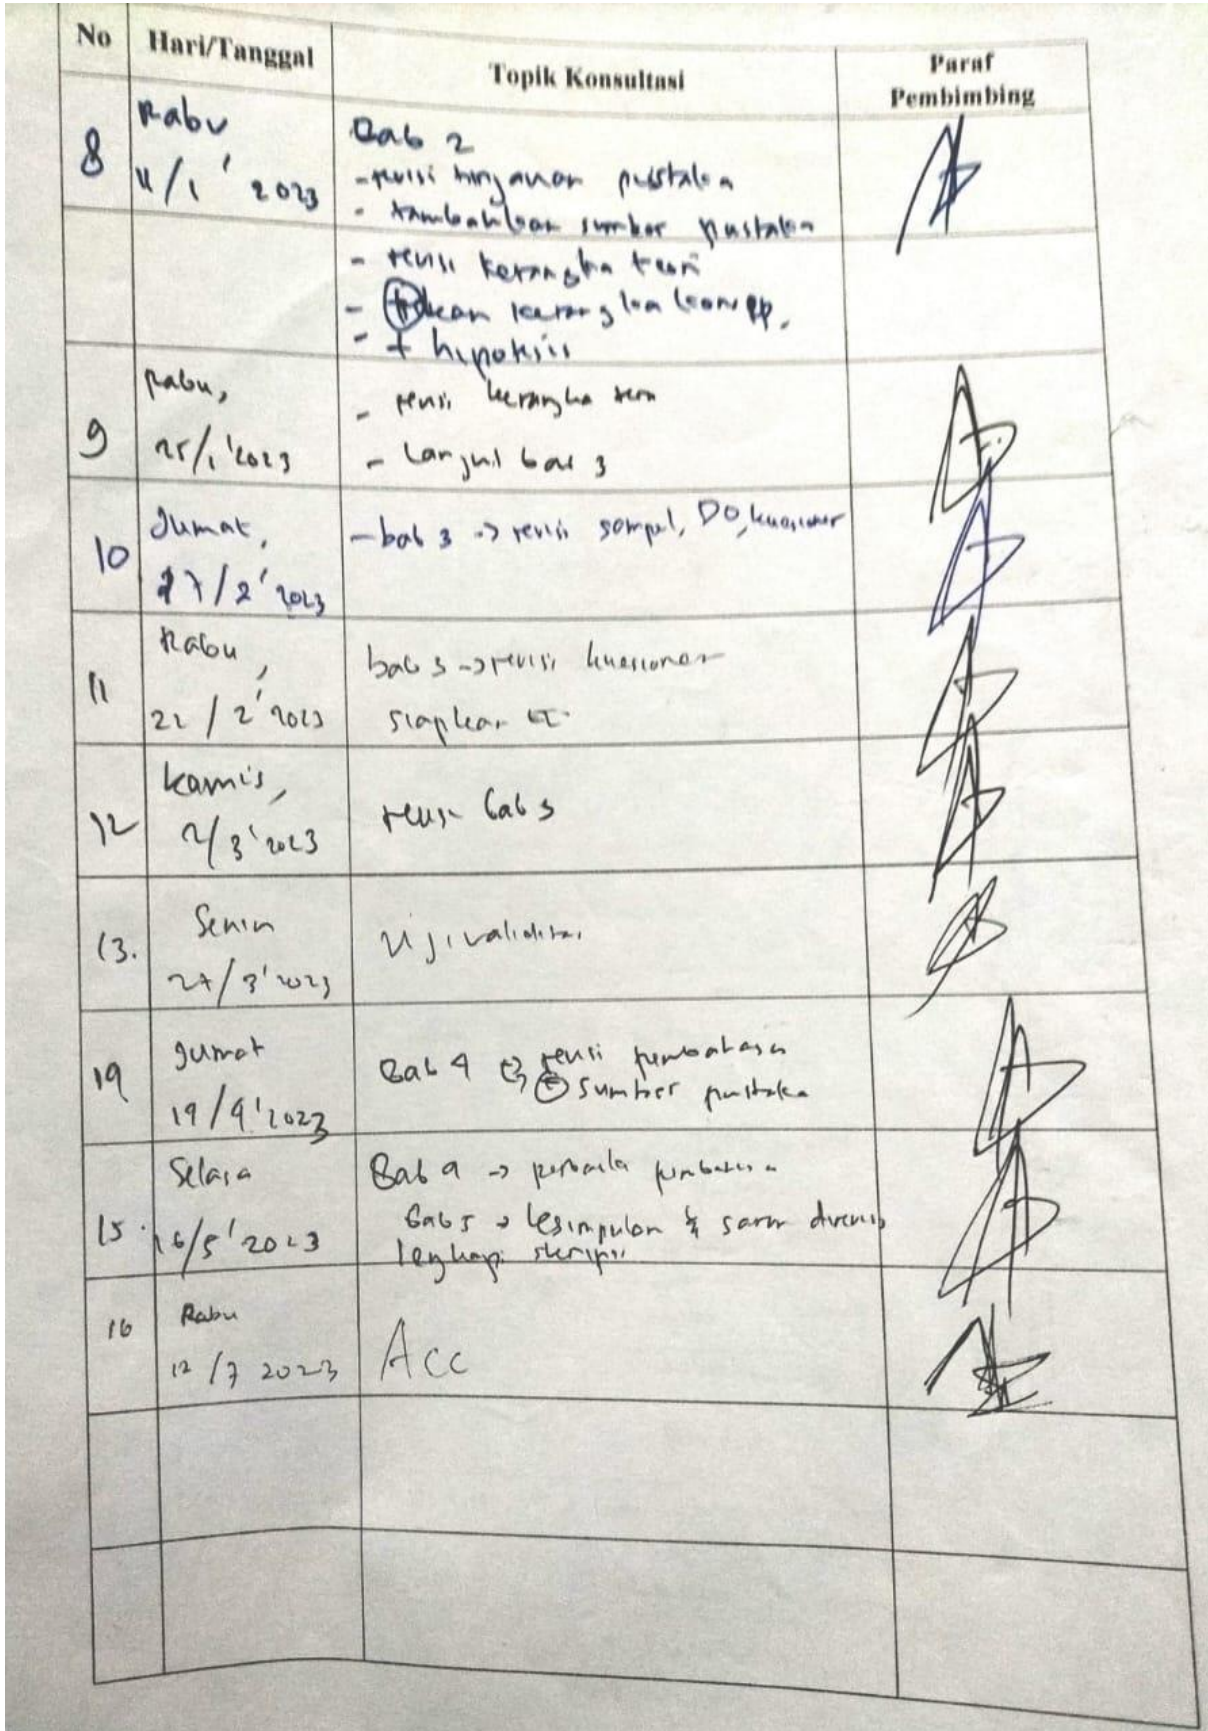 No Hari/Tanggal Topik Konsultasi Paraf Pembimbing
8 Rabu 11/1 ' 2023
Bab 2
- revisi tinjauan pustaka
- tambahkan sumber pustaka
- revisi kerangka teori
- +kan kerangka konsep.
- + hipotesis
9 Rabu, 25/1 '2023
- revisi kerangka teori
- Lanjut bab 3
10 Jumat, 17/2 ' 2023
- bab 3 -> revisi sampel, DO, kuesioner
11 Rabu, 22/2 ' 2023
bab 3 -> revisi kuesioner
siapkan
12 Kamis, 2/3 ' 2023
revisi bab 3
13. Senin 27/3 ' 2023
Uji validitas
14 Jumat 14/4 ' 2023
Bab 4 revisi pembahasan
+ sumber pustaka
15. Selasa 16/5 ' 2023
Bab 4 -> perbaiki pembahasan
bab 5 -> kesimpulan & saran direvisi
lengkapi skripsi
16 Rabu 12/7 2023
Acc